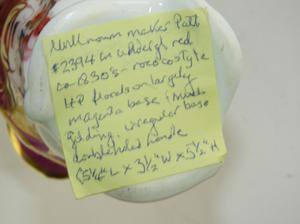 Unknown maker Patt
#2394 in underg. red
co 1830's - rococo style
HP florals on largely
magenta base, much
gilding, irregular base
double ended handle
(5¼" L x 3½" W x 5½" H